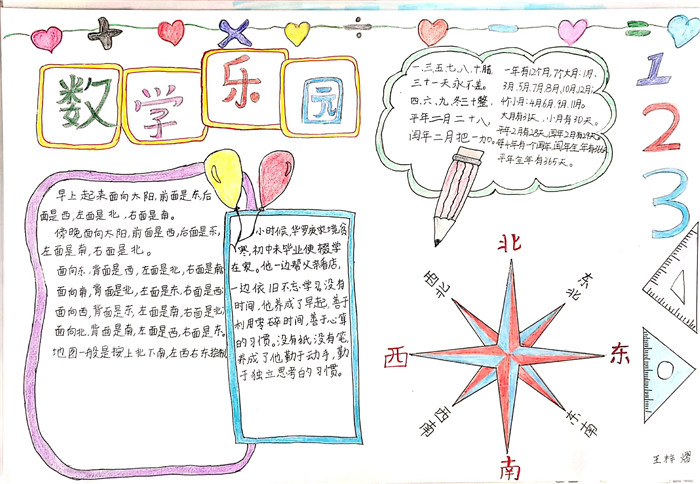 数学乐园
早上起来面向太阳,前面是东后
面是西,左面是北,右面是南。
傍晚面向太阳,前面是西,后面是东,
左面是南,右面是北。
面向东,背面是西,左面是北,右面是南
面向南,背面是北,左面是东,右面是西
面向西,背面是东,左面是南,右面是北
面向北,背面是南,左面是西,右面是东。
地图一般是按上北下南,左西右东绘制
小时候,华罗庚家境贫
寒,初中未毕业便辍学
在家。他一边帮父亲看店,
一边依旧不忘学习没有
时间,他养成了早起,善于
利用零碎时间,善于心算
的习惯。没有纸,没有笔,
养成了他勤于动手,勤
于独立思考的习惯。
一、三、五、七、八、十腊
三十一天永不差。
四、六、九、冬三十整,
平年二月二十八,
闰年二月把一加。
一年有12个月,7个大月:1月、
3月、5月、7月、8月、10月、12月;
4个小月:4月、6月、9月、11月。
大月有31天,小月有30天。
平年2月有28天,闰年2月有29天。
每4年有一个闰年,闰年全年有366天
平年全年有365天。
1
2
3
北
东北
东
东南
南
西南
西
西北
王梓熠